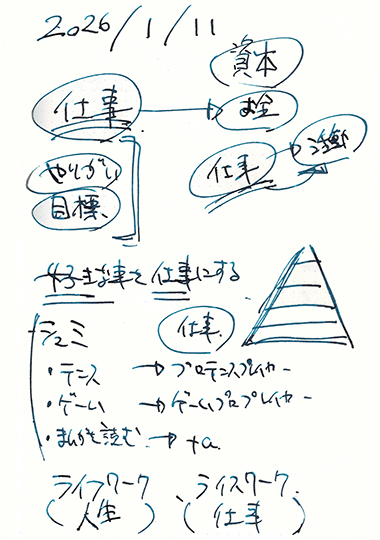 2026/1/11
資本
仕事 → お金
仕事 → 活動
やりがい
目標
好きな事を仕事にする
仕事
シュミ
・テニス → プロテニスプレイヤー
・ゲーム → ゲームプロプレイヤー
・まんがを読む → +α
ライフワーク、ライスワーク
(人生) (仕事)